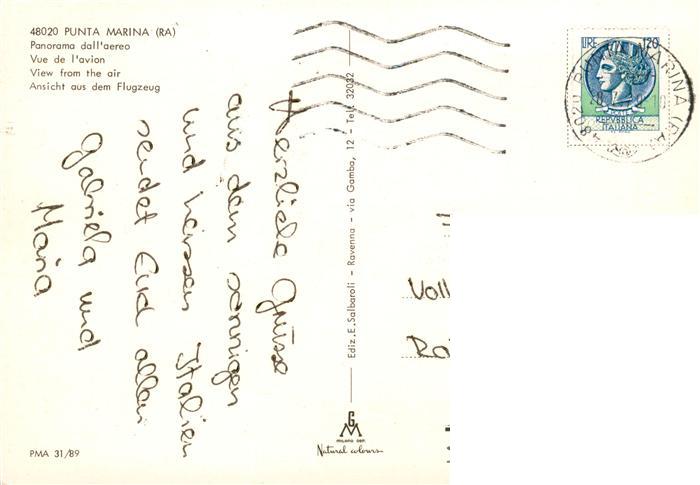 48020 PUNTA MARINA (RA)
Panorama dall'aereo
Vue de l'avion
View from the air
Ansicht aus dem Flugzeug
Herzliche Grüsse
aus dem sonnigen
und heissen Italien
sendet Euch allen
Gabriela und
Maria
Ediz. E. Salbaroli - Ravenna - via Gamba, 12 - Tel. 32032
LIRE 120
REPVBBLICA
ITALIANA
48020 PUNTA MARINA (RA)
Voll
Ro
G
M
MILANO DEP.
Natural colours
PMA 31/89